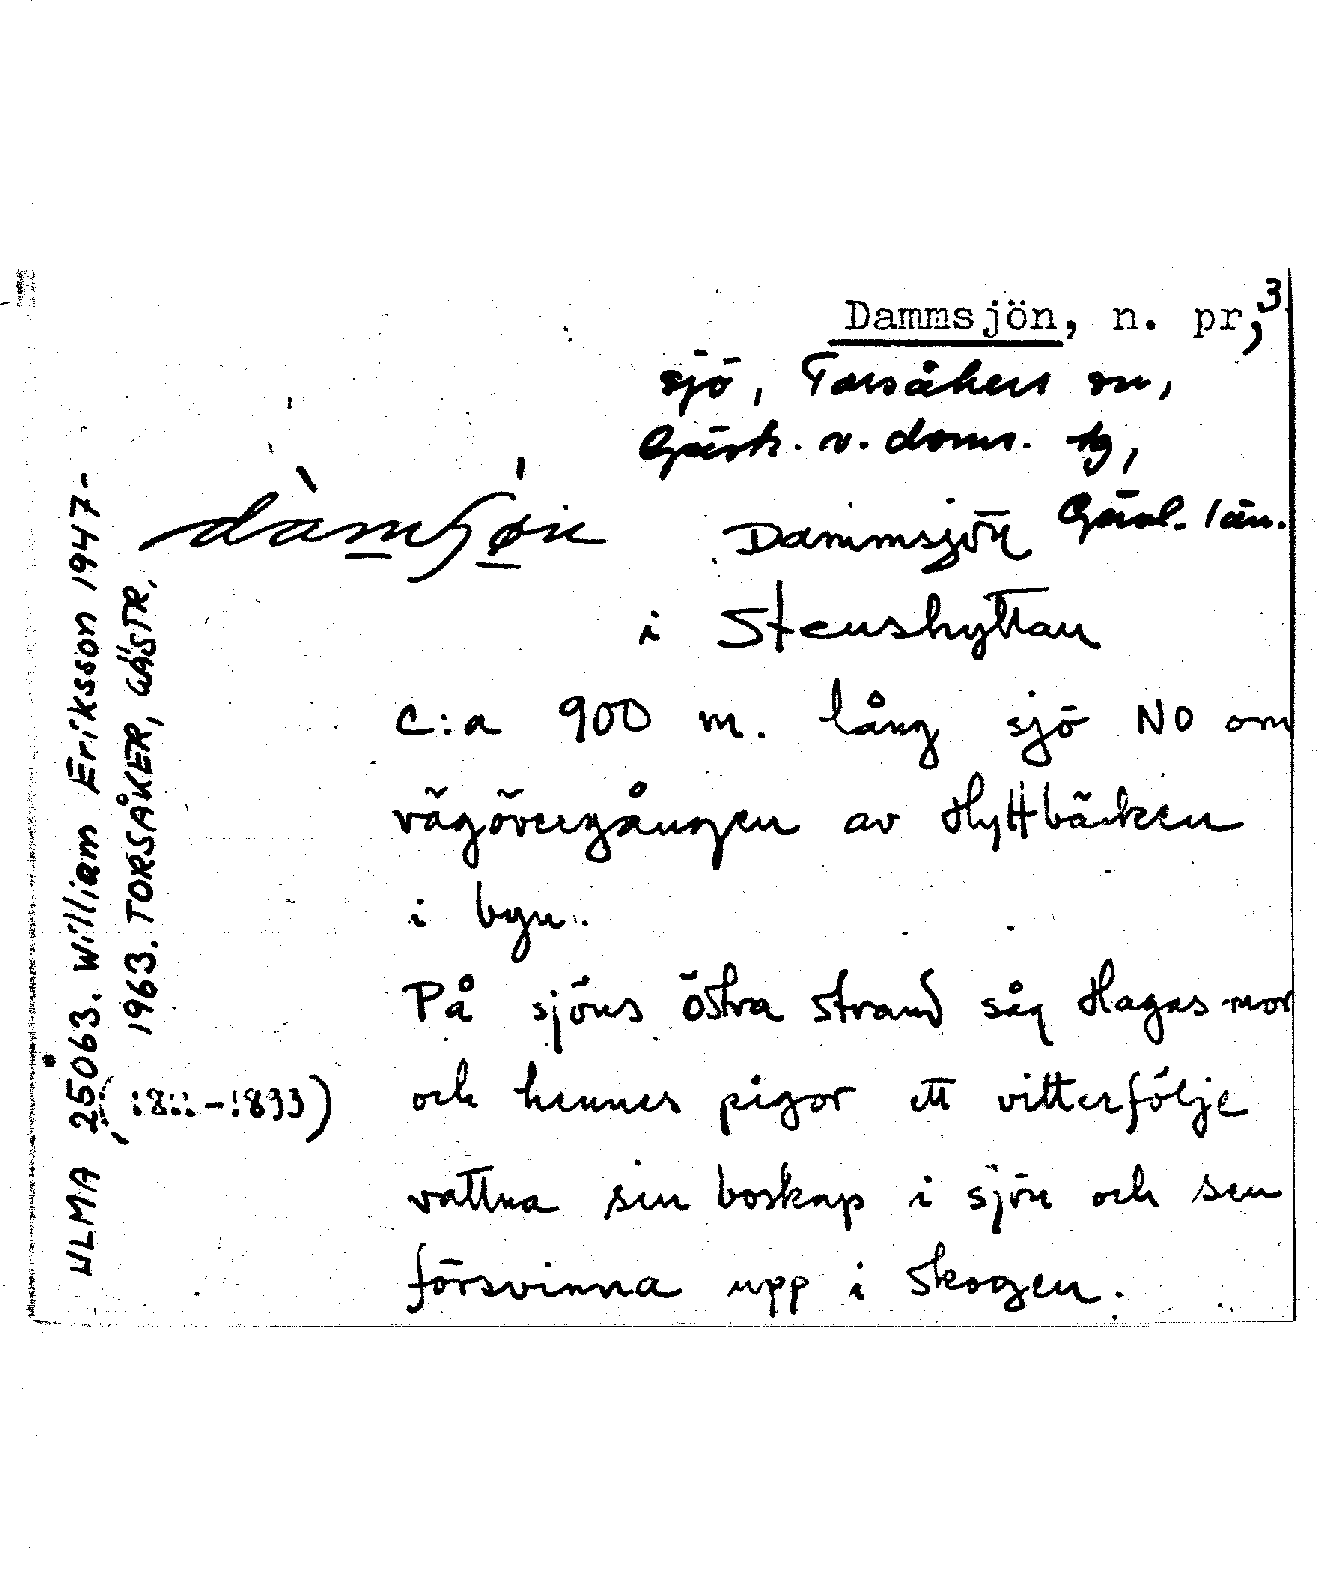 Dammsjön, n. pr, 3.
sjö, Torsåkers sn,
Gästr. v. doms. tg,
Gävl. län.
dàmʃǿn Dammsjön
i Stenshyttan
c:a 900 m. lång sjö NO om
vägövergången av Hyttbäcken
i byn.
På sjöns östra strand såg Hagas mor
(-1833) och hennes pigor ett vitterfölje
vattna sin boskap i sjön och sen
försvinna upp i skogen.
ULMA 25063. William Eriksson 1947-
1963. TORSÅKER, GÄSTR.